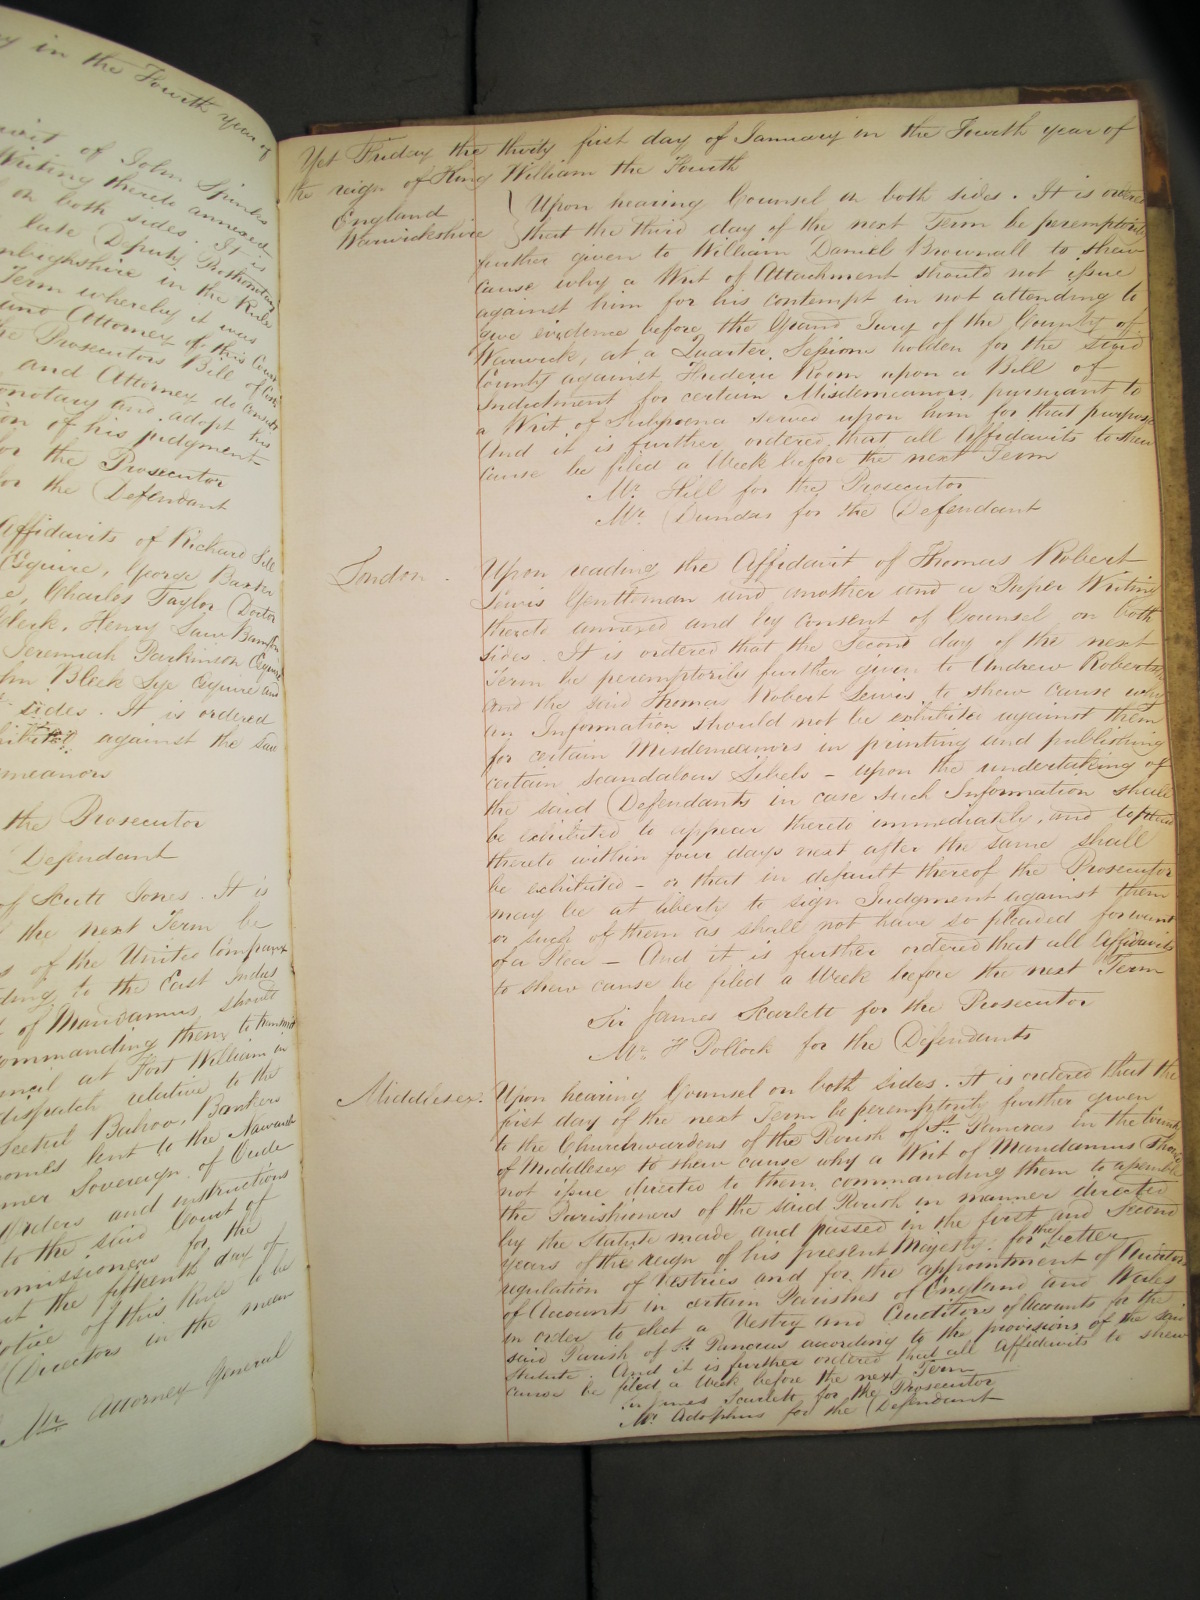 y in the Fourth year of
of John Spinks
Writing thereto annexed
on both sides. It is
late Deputy
in the Rule
Term whereby it was
and Attorney of this Court
the Prosecutors Bill of
and Attorney do
and adopt his
of his judgment
for the Prosecutor
for the Defendant
Affidavits of Richard
Esquire, George Baxter
Charles Taylor Doctor
Clerk, Henry
Jeremiah Parkinson Esquire
Bleek Lye Esquire and
sides. It is ordered
against the said
the Prosecutor
Defendant
of Scutt Jones. It is
the next Term be
of the United Company
to the East Indies
of Mandamus should
commanding them to transmit
at Fort William in
dispatch relative to the
Bahoo, Bankers
lent to the Nawaub
Sovereign of Oude
Orders and instructions
to the said Court of
for the
the fifteenth day of
of this Rule to be
Directors in the mean
Mr. Attorney General
Yet Friday the thirty first day of January in the Fourth year of
the reign of King William the Fourth
England
Warwickshire
Upon hearing Counsel on both sides. It is ordered
that the third day of the next Term be peremptorily
further given to William Daniel Brownall to shew
cause why a Writ of Attachment should not issue
against him for his contempt in not attending to
give evidence before the Grand Jury of the County of
Warwick, at a Quarter Sessions holden for the said
County against Frederic Room upon a Bill of
Indictment for certain Misdemeanors, pursuant to
a Writ of Subpoena served upon him for that purpose
And it is further ordered that all Affidavits to shew
cause be filed a Week before the next Term
Mr. Hill for the Prosecutor
Mr. Dundas for the Defendant
London.
Upon reading the Affidavit of Thomas Robert
Lewis Gentleman and another and a Paper Writing
thereto annexed and by consent of Counsel on both
sides. It is ordered that the Second day of the next
Term be peremptorily further given to Andrew Robertson
and the said Thomas Robert Lewis to shew cause why
an Information should not be exhibited against them
for certain Misdemeanors in printing and publishing
certain scandalous Libels – upon the undertaking of
the said Defendants in case such Information shall
be exhibited to appear thereto immediately, and to plead
thereto within four days next after the same shall
be exhibited – or that in default thereof the Prosecutor
may be at liberty to sign Judgment against them
or such of them as shall not have so pleaded for want
of a Plea – And it is further ordered that all Affidavits
to shew cause be filed a Week before the next Term
Sir James Scarlett for the Prosecutor
Mr. F Pollock for the Defendants
Middlesex.
Upon hearing Counsel on both sides. It is ordered that the
first day of the next Term be peremptorily further given
to the Churchwardens of the Parish of St. Pancras in the County
of Middlesex to shew cause why a Writ of Mandamus should
not issue directed to them, commanding them to assemble
the Parishioners of the said Parish in manner directed
by the Statute made and passed in the first and second
years of the reign of his present Majesty, for the better
regulation of Vestries and for the appointment of Auditors
of Accounts in certain Parishes of England and Wales
in order to elect a Vestry and Auditors of Accounts for the
said Parish of St. Pancras according to the provisions of the said
Statute. And it is further ordered that all Affidavits to shew
cause be filed a Week before the next Term
Sir James Scarlett for the Prosecutor
Mr. Adolphus for the Defendant